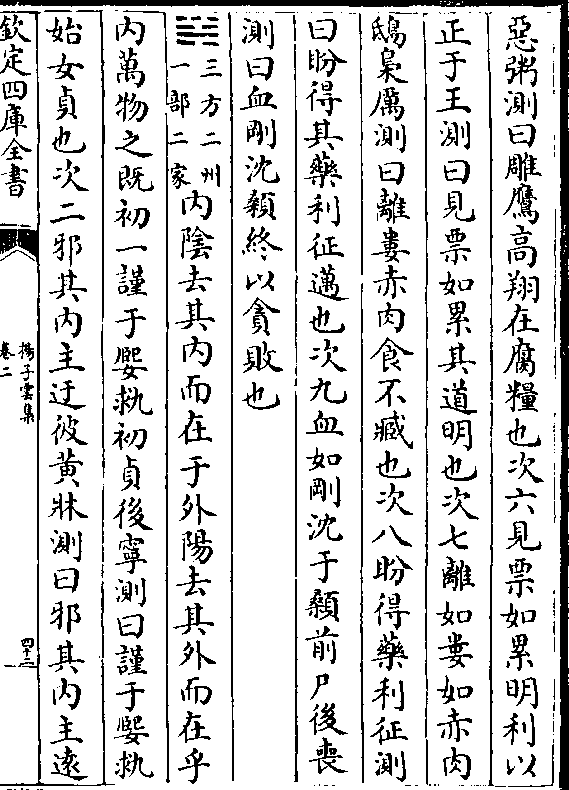 惡粥測曰雕鷹高翔在腐糧也次六見票如累明利以
正于王測曰見票如累其道明也次七離如婁如赤肉
鴟梟厲測曰離婁赤肉食不臧也次八盼得藥利征測
曰盼得其藥利征邁也次九血如剛沈于顙前尸後喪
測曰血剛沈顙終以貪敗也
三方二州
一部二家
內陰去其內而在于外陽去其外而在乎
內萬物之既初一謹于媐執初貞後寧測曰謹于媐執
始女貞也次二邪其內主迂彼黃牀測曰邪其內主遠
欽定四庫全書
揚子雲集
卷二
四十三